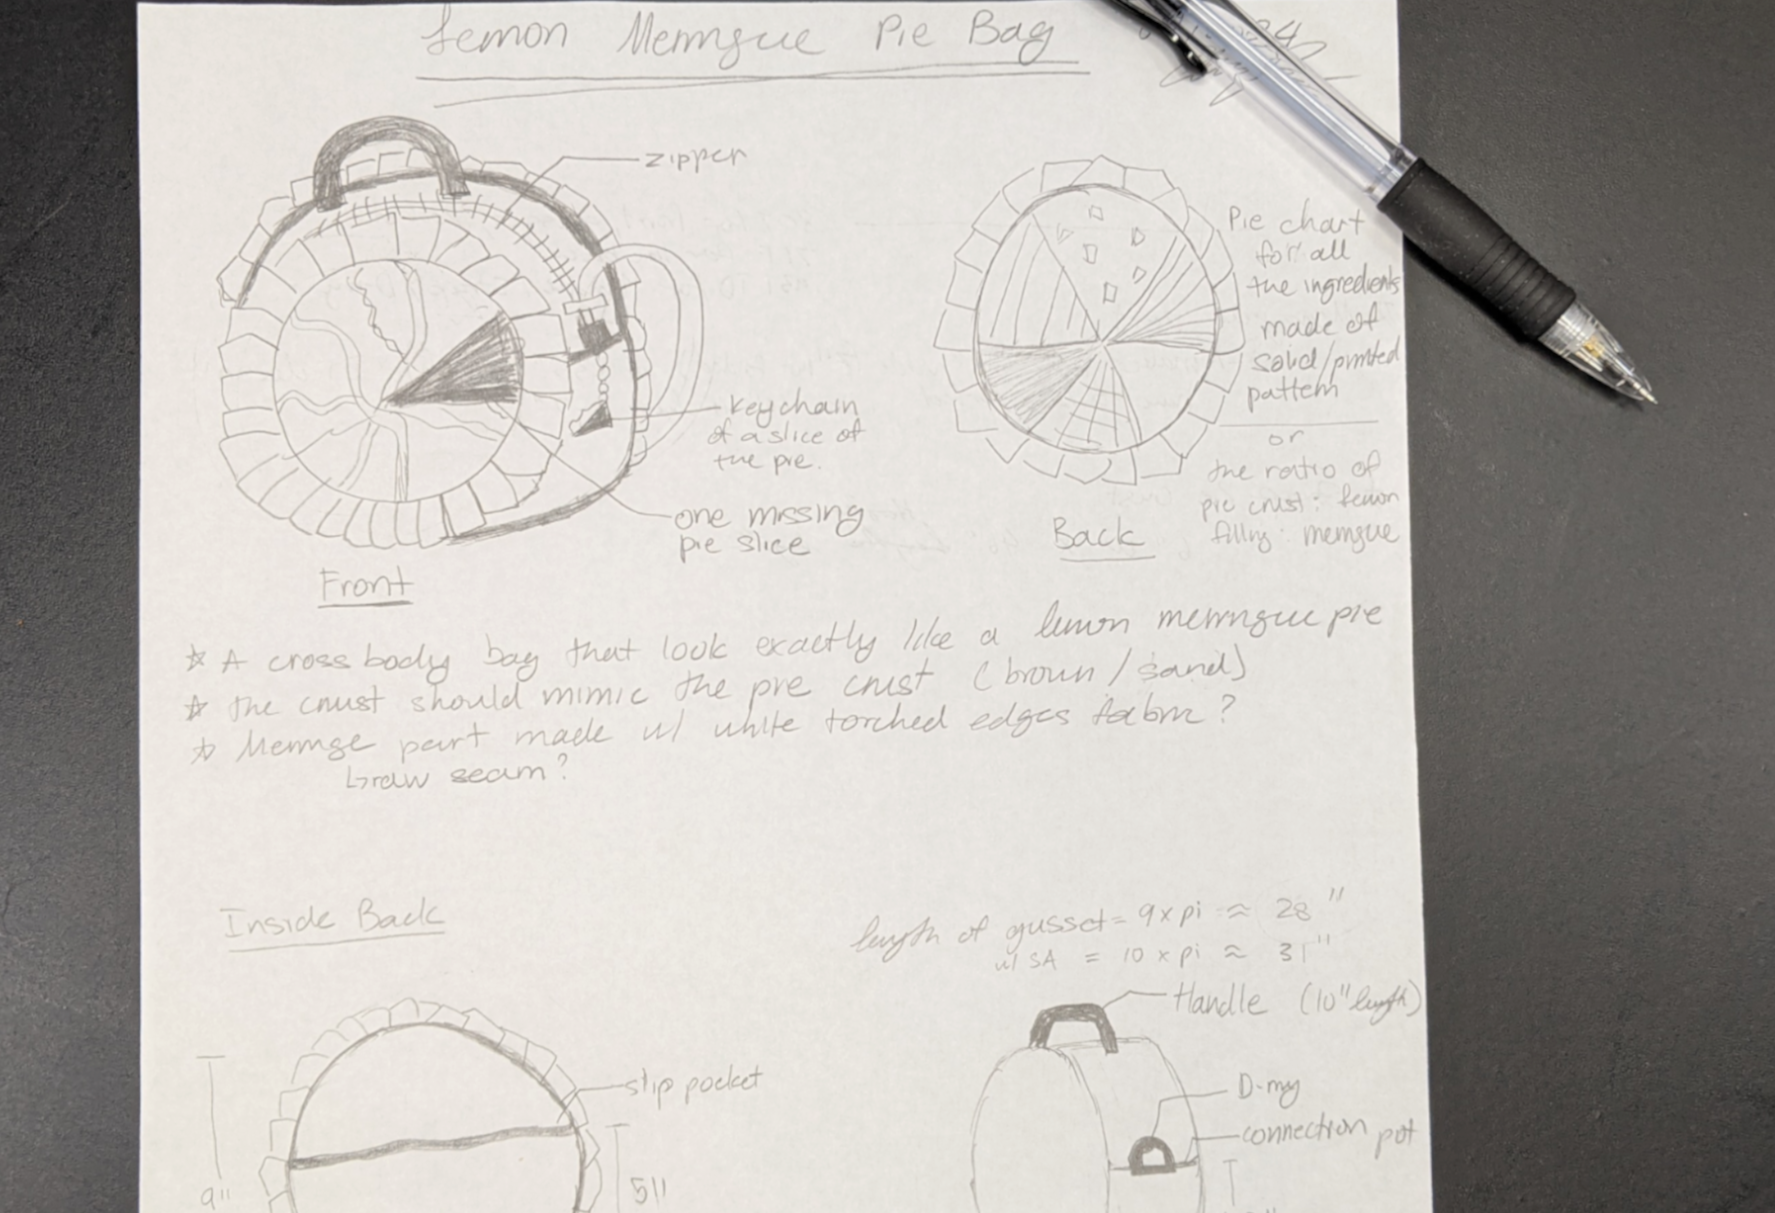 Lemon Meringue Pie Bag
zipper
keychain
of a slice of
the pie.
one missing
pie slice
Front
Pie chart
for all
the ingredients
made of
solid/printed
pattern
or
the ratio of
pie crust: lemon
filling: meringue
Back
☆ A crossbody bag that look exactly like a lemon meringue pie
☆ the crust should mimic the pie crust (brown/sand)
☆ Meringe part made w/ white torched edges fabric?
↳ raw seam?
Inside Back
slip pocket
9"
5"
length of gusset = 9 x pi ≈ 28"
w/ SA = 10 x pi ≈ 31"
Handle (10" length)
D-ring
connection pot